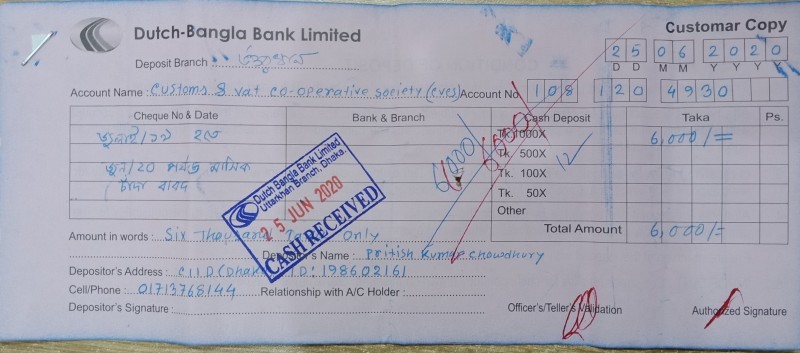 Dutch-Bangla Bank Limited
Customar Copy
Deposit Branch :
25 06 2020
D D M M Y Y Y Y
Account Name : Customs & vat co-operative society (cvcs) Account No. 108 120 4930
Cheque No & Date Bank & Branch Cash Deposit Taka Ps.
জুলাই/১৯ হতে Tk. 1000X 6,000/=
Tk. 500X 12
জুন/২০ পর্যন্ত মাসিক Tk. 100X
চাঁদা বাবদ Tk. 50X
Other
6000/
6000/
Total Amount 6,000/=
Dutch Bangla Bank Limited
Uttarkhan Branch, Dhaka.
25 JUN 2020
CASH RECEIVED
Amount in words : Six Thousand Only
Depositor's Name : Pritish Kumar Chowdhury
Depositor's Address : CIID (Dhaka) ID: 198602161
Cell/Phone : 01713768144 Relationship with A/C Holder :
Depositor's Signature :
Officer's/Teller's Validation Authorized Signature